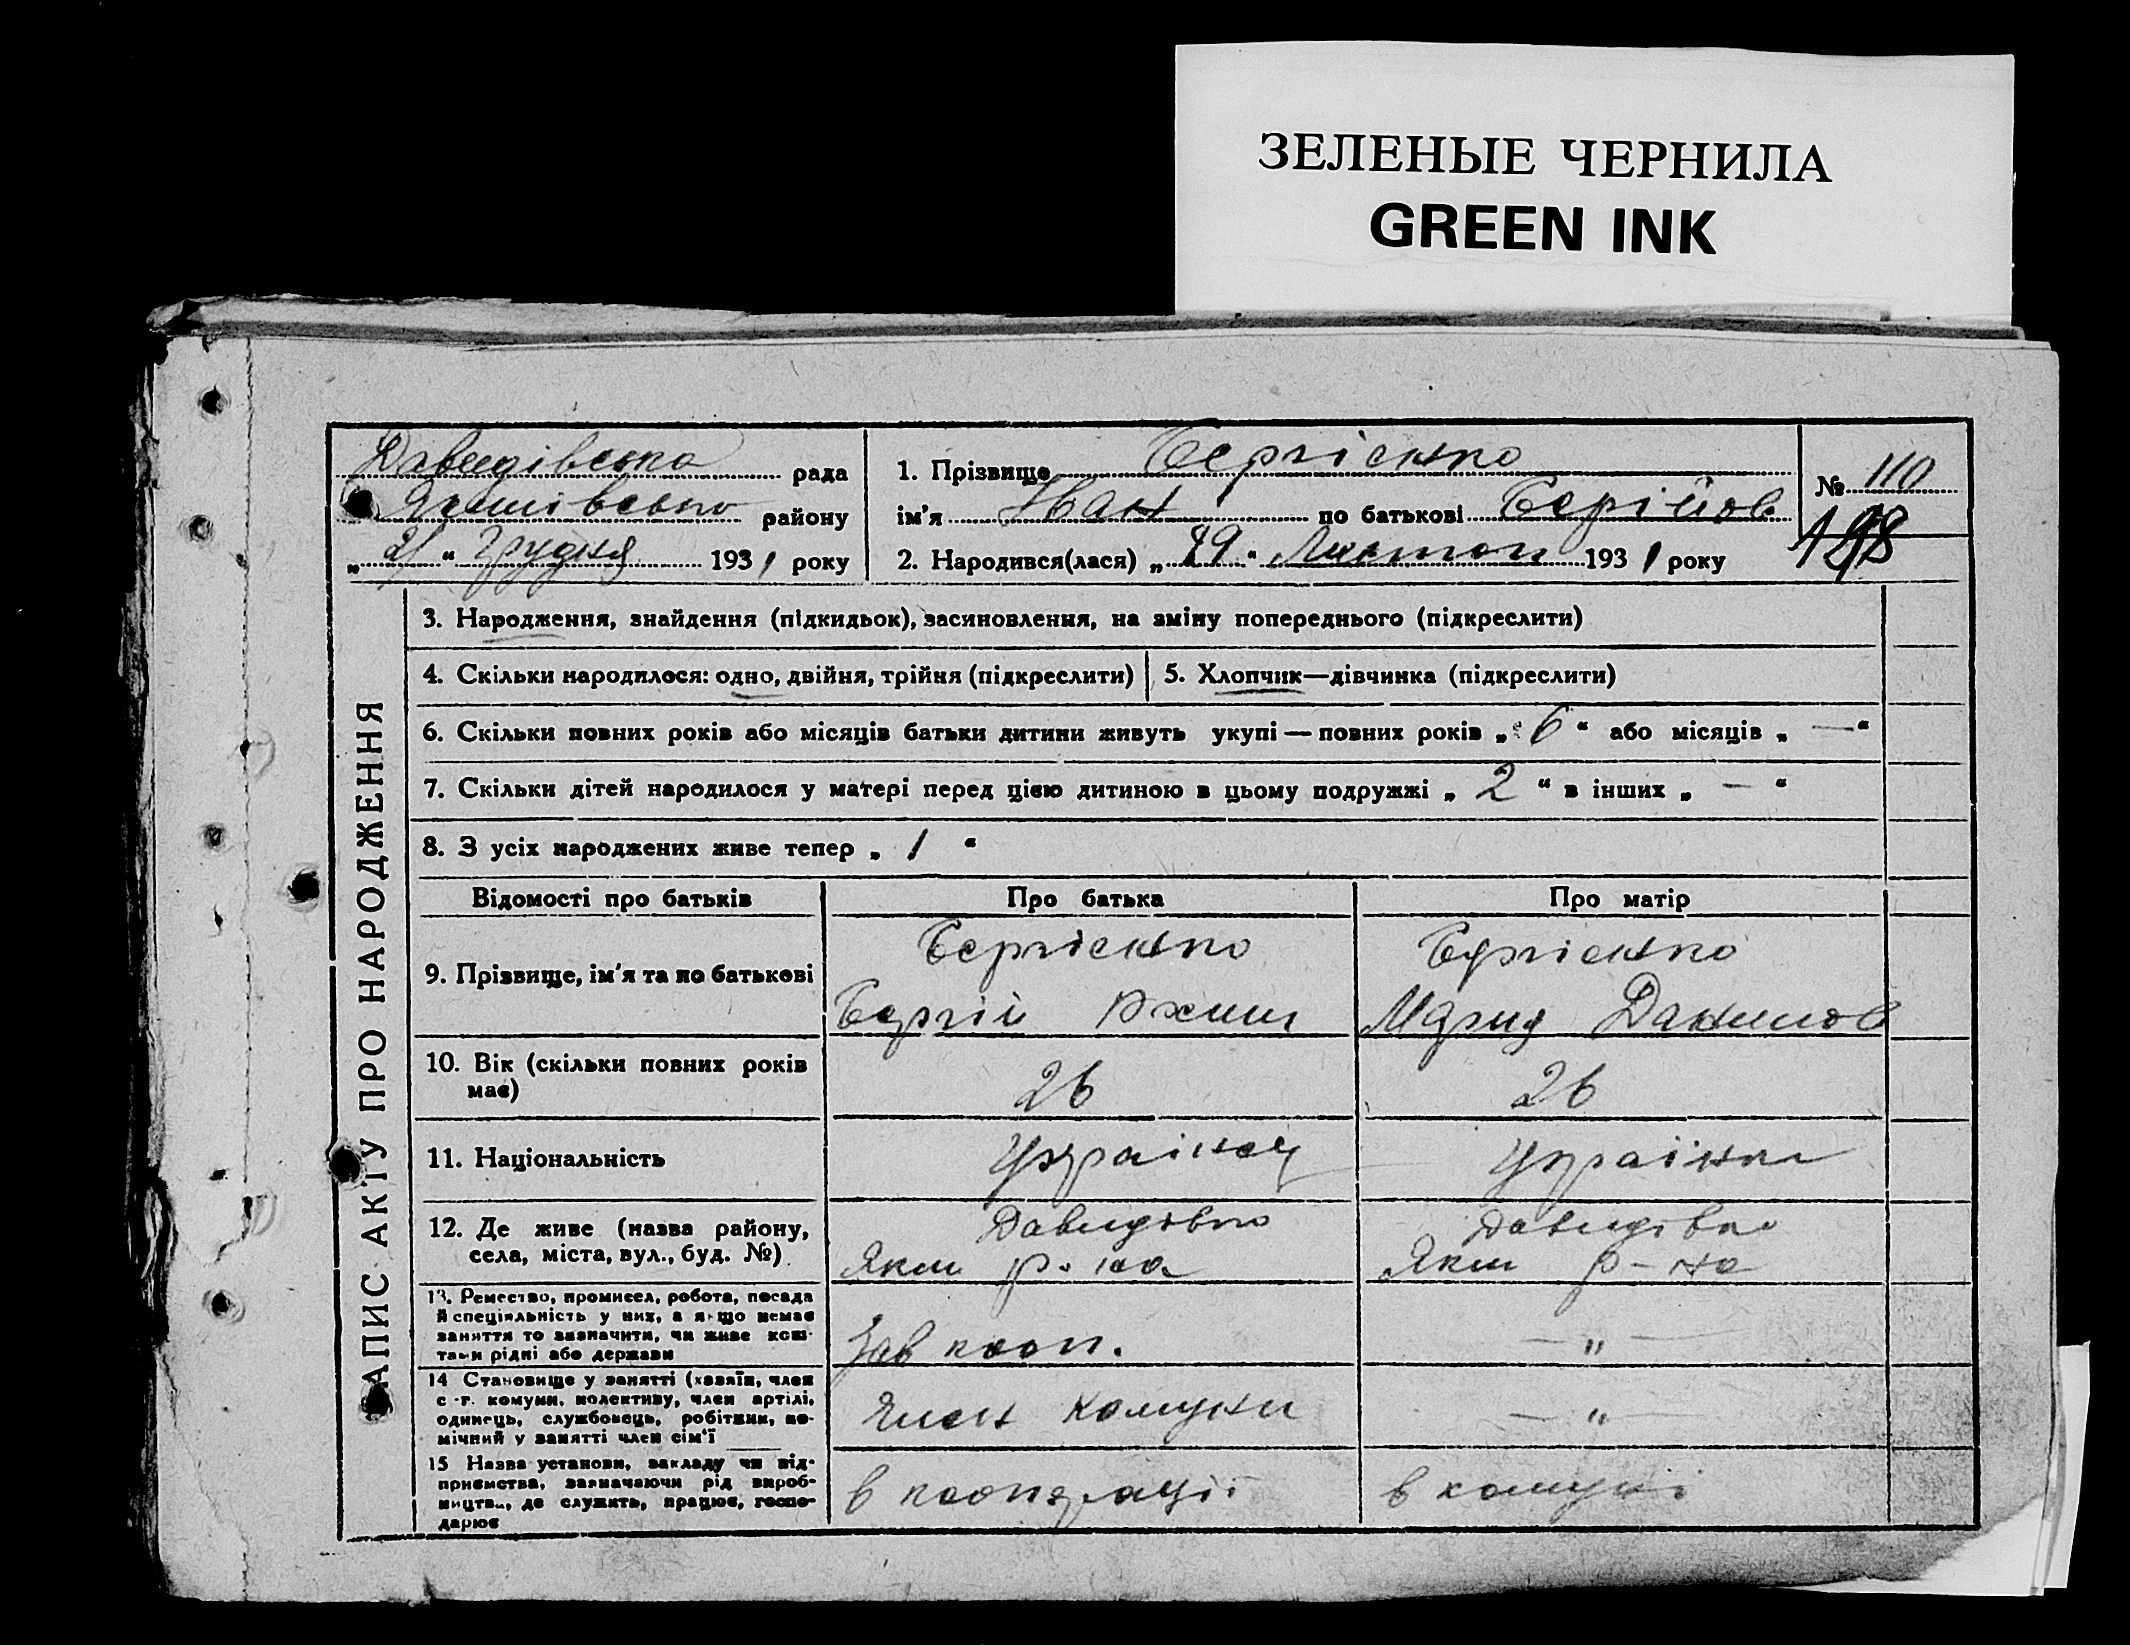 ЗЕЛЕНЫЕ ЧЕРНИЛА
GREEN INK
Давидівська рада
Якимівсько району
„ 21 “ Грудня 1931 року
1. Прізвище Сергієнко
ім'я Іван по батькові Сергійов
2. Народився(лася) „ 29 “ Листоп 1931 року
№ 110
198
ЗАПИС АКТУ ПРО НАРОДЖЕННЯ
3. Народження, знайдення (підкидьок), засиновлення, на зміну попереднього (підкреслити)
4. Скільки народилося: одно, двійня, трійня (підкреслити)
5. Хлопчик—дівчинка (підкреслити)
6. Скільки повних років або місяців батьки дитини живуть укупі — повних років „ 6 “ або місяців „ — “
7. Скільки дітей народилося у матері перед цією дитиною в цьому подружжі „ 2 “ в інших „ — “
8. З усіх народжених живе тепер „ 1 “
Відомості про батьків
Про батька
Про матір
9. Прізвище, ім'я та по батькові
Сергієнко
Сергій
Сергієнко
Мария Данилов
10. Вік (скільки повних років
має)
26
26
11. Національність
Українец
Українка
12. Де живе (назва району,
села, міста, вул., буд. №)
Давидівка
Яким р-на
Давидівка
Яким р-на
13. Ремество, промисел, робота, посада
й спеціяльність у них, а якщо немає
заняття то зазначити, чи живе кош-
тами рідні або держави
Зав кооп.
— „ —
14 Становище у занятті (хазяїн, член
с.-г. комуни, колективу, член артілі,
одинець, службовець, робітник, по-
мічний у занятті член сім'ї
Член комуни
— „ —
15 Назва установи, закладу чи під-
приємства, зазначаючи рід вироб-
ництва, де служить, працює, госпо-
дарює
в кооперації
в комуні